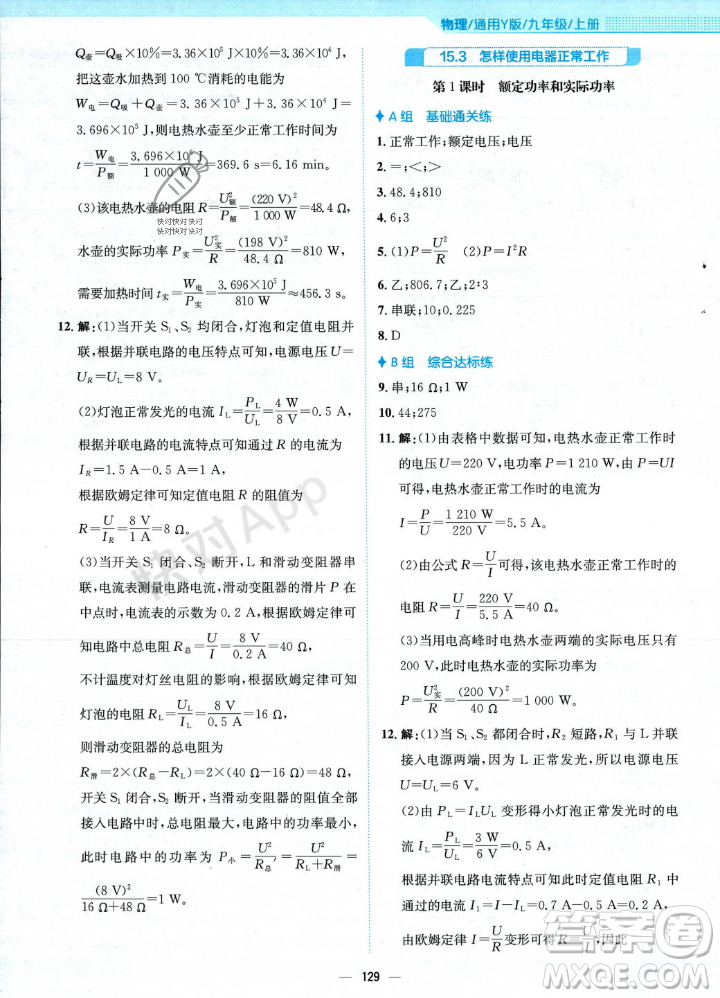 物理/通用Y版/九年级/上册
Q壶×10%=3.36×10⁵ J×10%=3.36×10⁴ J
把这壶水加热到 100 ℃消耗的电能为
W电=Q吸+Q壶=3.36×10⁵ J+3.36×10⁴ J=
3.696×10⁵ J,则电热水壶至少正常工作时间为
t=W电/P额=3.696×10⁵ J/1 000 W=369.6 s=6.16 min.
(3)该电热水壶的电阻 R=U²额/P额=(220 V)²/1 000 W=48.4 Ω,
水壶的实际功率 P实=U²实/R=(198 V)²/48.4 Ω=810 W,
需要加热时间 t实=W电/P实=3.696×10⁵ J/810 W≈456.3 s.
12. 解:(1)当开关 S₁、S₂ 均闭合,灯泡和定值电阻并
联,根据并联电路的电压特点可知,电源电压 U=
U_R=U_L=8 V.
(2)灯泡正常发光的电流 I_L=P_L/U_L=4 W/8 V=0.5 A,
根据并联电路的电流特点可知通过 R 的电流
I_R=1.5 A-0.5 A=1 A,
根据欧姆定律可知定值电阻 R 的阻值为
R=U_R/I_R=8 V/1 A=8 Ω.
(3)当开关 S₁ 闭合、S₂ 断开,L 和滑动变阻器串
联,电流表测量电路电流,滑动变阻器的滑片 P 在
中点时,电流表的示数为 0.2 A,根据欧姆定律可
知电路中总电阻 R总=U/I=8 V/0.2 A=40 Ω,
不计温度对灯丝电阻的影响,根据欧姆定律可知
灯泡的电阻 R_L=U_L/I_L=8 V/0.5 A=16 Ω,
则滑动变阻器的最大电阻为
R滑=2×(R总-R_L)=2×(40 Ω-16 Ω)=48 Ω,
当开关 S₁ 闭合、S₂ 断开,当滑动变阻器的阻值全部
接入电路中时,电路中总电阻最大,总功率最小,
此时电路中的功率为 P小=U²/R总=U²/(R_L+R滑)=
(8 V)²/(16 Ω+48 Ω)=1 W.
15.3 怎样使用电器正常工作
第 1 课时 额定功率和实际功率
A 组 基础通关练
1. 正常工作;额定电压;电压
2. =;<;>
3. 48.4;810
4. 6;3
5. (1)P=U²/R (2)P=I²R
6. 乙;806.7;乙;2∶3
7. 串联;10;0.225
8. D
B 组 综合达标练
9. 串;16 Ω;1 W
10. 44;275
11. 解:(1)由表格中数据可知,电热水壶正常工作时
的电压 U=220 V,电功率 P=1 210 W,由 P=UI
可得,电热水壶正常工作时的电流为
I=P/U=1 210 W/220 V=5.5 A.
(2)由欧姆定律 I=U/R 可得,该电热水壶正常工作
时的电阻为 R=U/I=220 V/5.5 A=40 Ω.
(3)当用电高峰时电热水壶两端的实际电压为
200 V 时,电热水壶的实际功率为
P=U²实/R=(200 V)²/40 Ω=1 000 W.
12. 解:(1)当 S₁、S₂ 都闭合时,R₂ 短路,R₁ 与 L 并联
接入电源两端,因为小灯泡正常发光,所以电源电压
U=U_L=6 V.
(2)由 P_L=I_LU_L 变形得小灯泡正常发光时的电
流 I_L=P_L/U_L=3 W/6 V=0.5 A,
根据并联电路电流特点可知此时定值电阻 R₁ 中
通过的电流 I₁=I-I_L=0.7 A-0.5 A=0.2 A,
由欧姆定律 I=U/R 变形可得 R=U/I,因此
129
快对 快对 快对
快对 快对 快对
快对App
答案圈
MXQE.COM